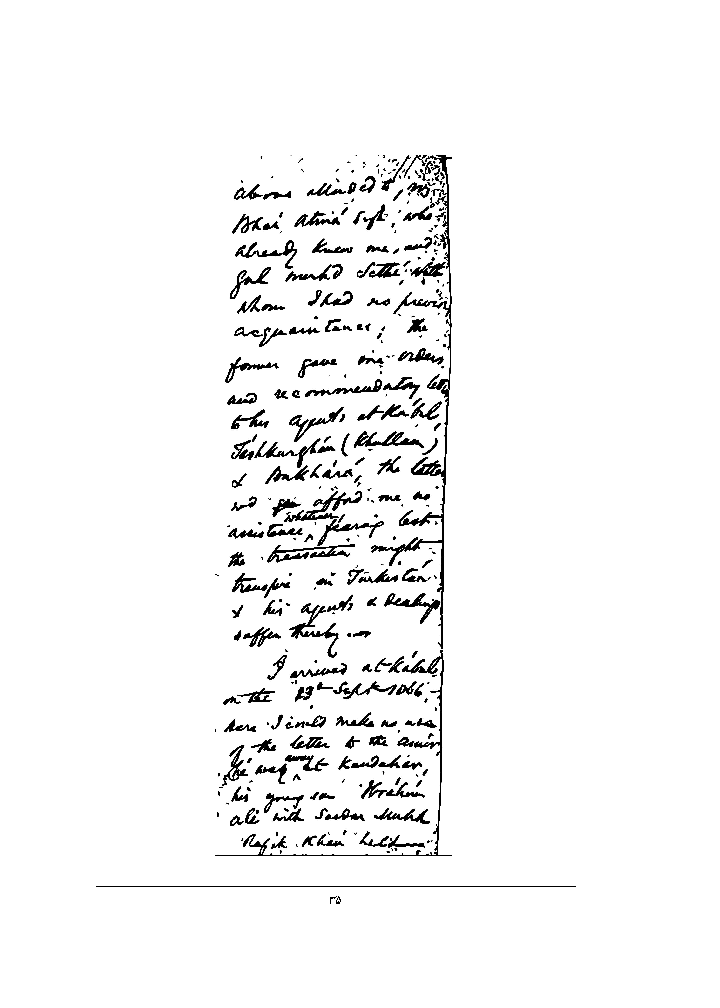 above alluded to, viz
Bhai Atmá Sigh, who
already knew me, and
Gul Merh'd Sethé, with
whom I had no previou
acquaintance; the
former gave me orders
and recommendatory lette
to his agents at Kábul
Táshkurghán (Khullam)
& Bukhárá, the latter
wd afford me no
assistance whatever, fearing lest
the transaction might
transpire in Turkistán
& his agents & dealings
suffer thereby
I arrived at Kábul
on the 23d Sept 1866,
here I could make no use
of the letter to the Amír,
he was away at Kandahár,
his young son Ibráhím
Ali with Sardar Muhd
Rafik Khán held
۳۵